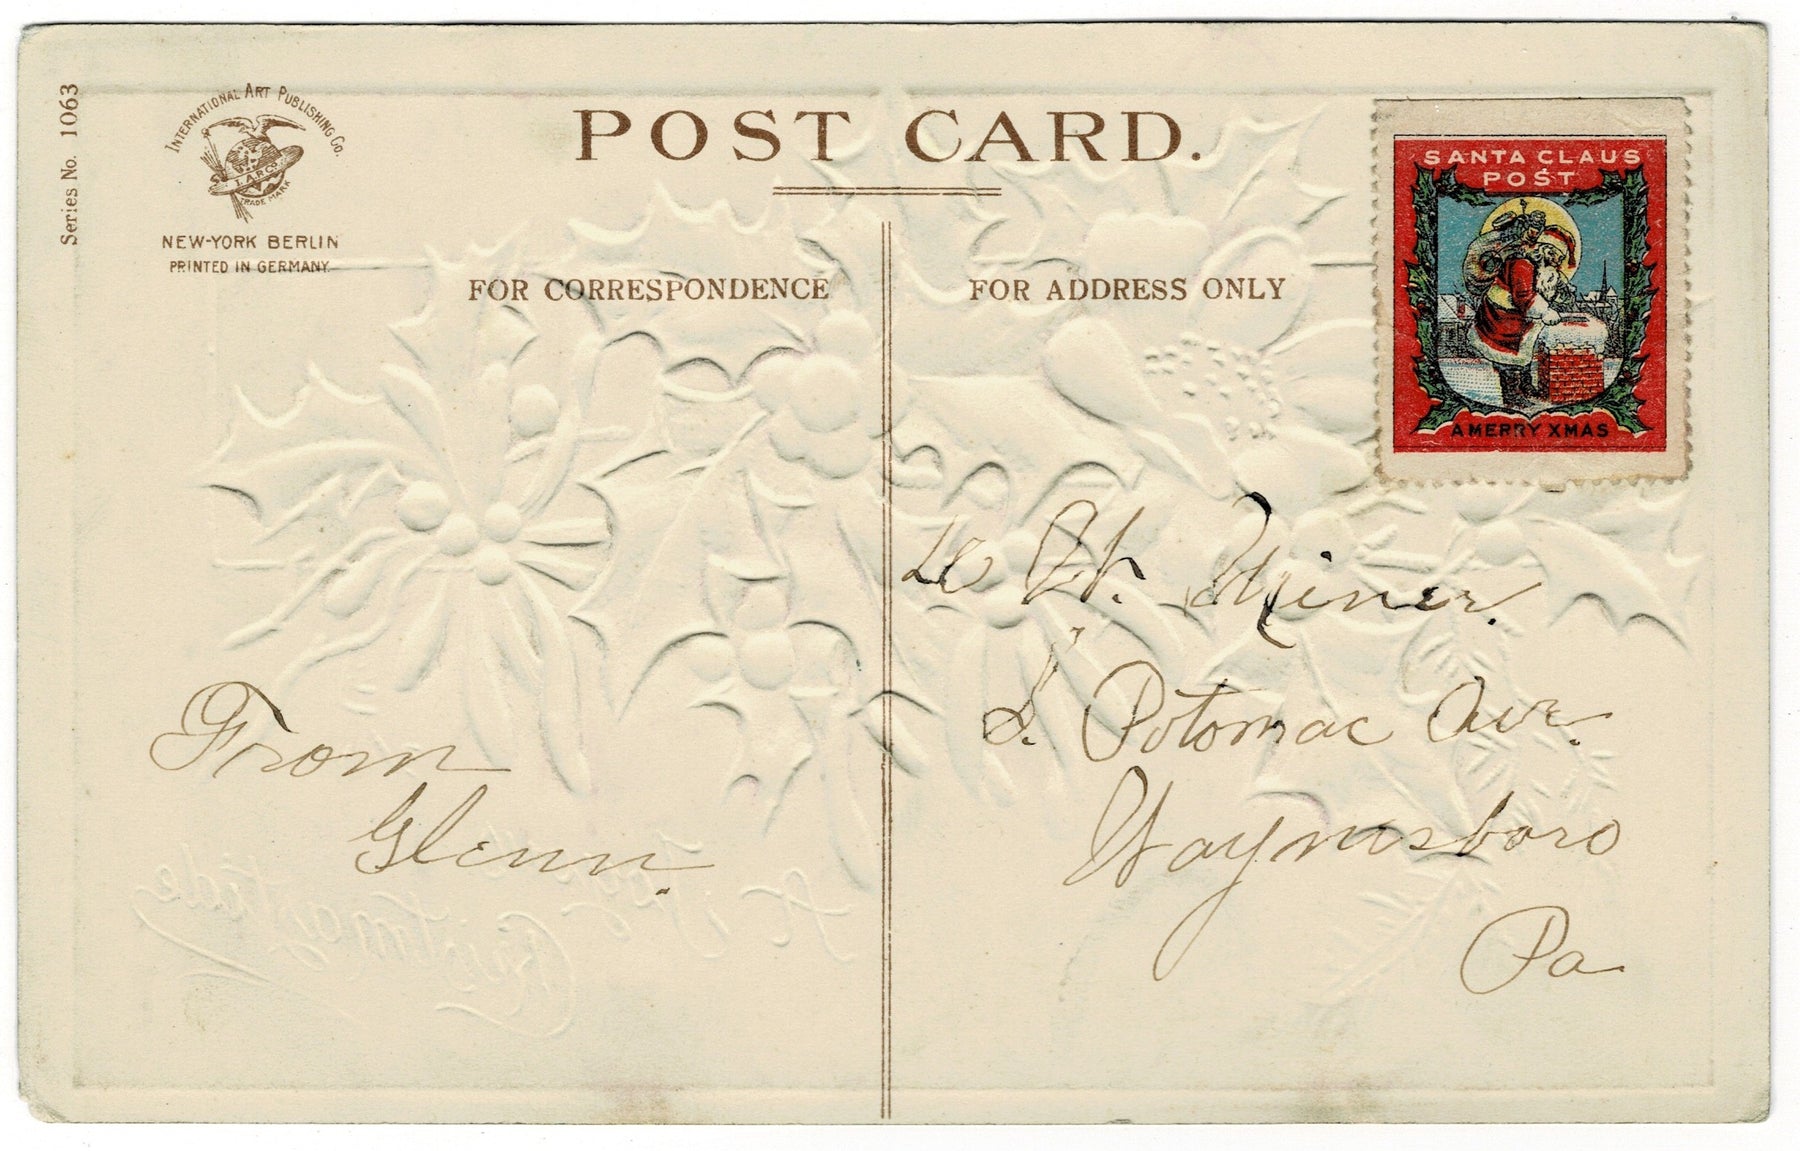 Series No. 1063
INTERNATIONAL ART PUBLISHING Co.
I.A.P.CO.
TRADE MARK
NEW-YORK BERLIN
PRINTED IN GERMANY
POST CARD.
FOR CORRESPONDENCE
FOR ADDRESS ONLY
SANTA CLAUS
POST
A MERRY XMAS
Miner.
S. Potomac Ave.
Waynesboro
Pa
From
Glenn.
A Joyous
Christmas tide